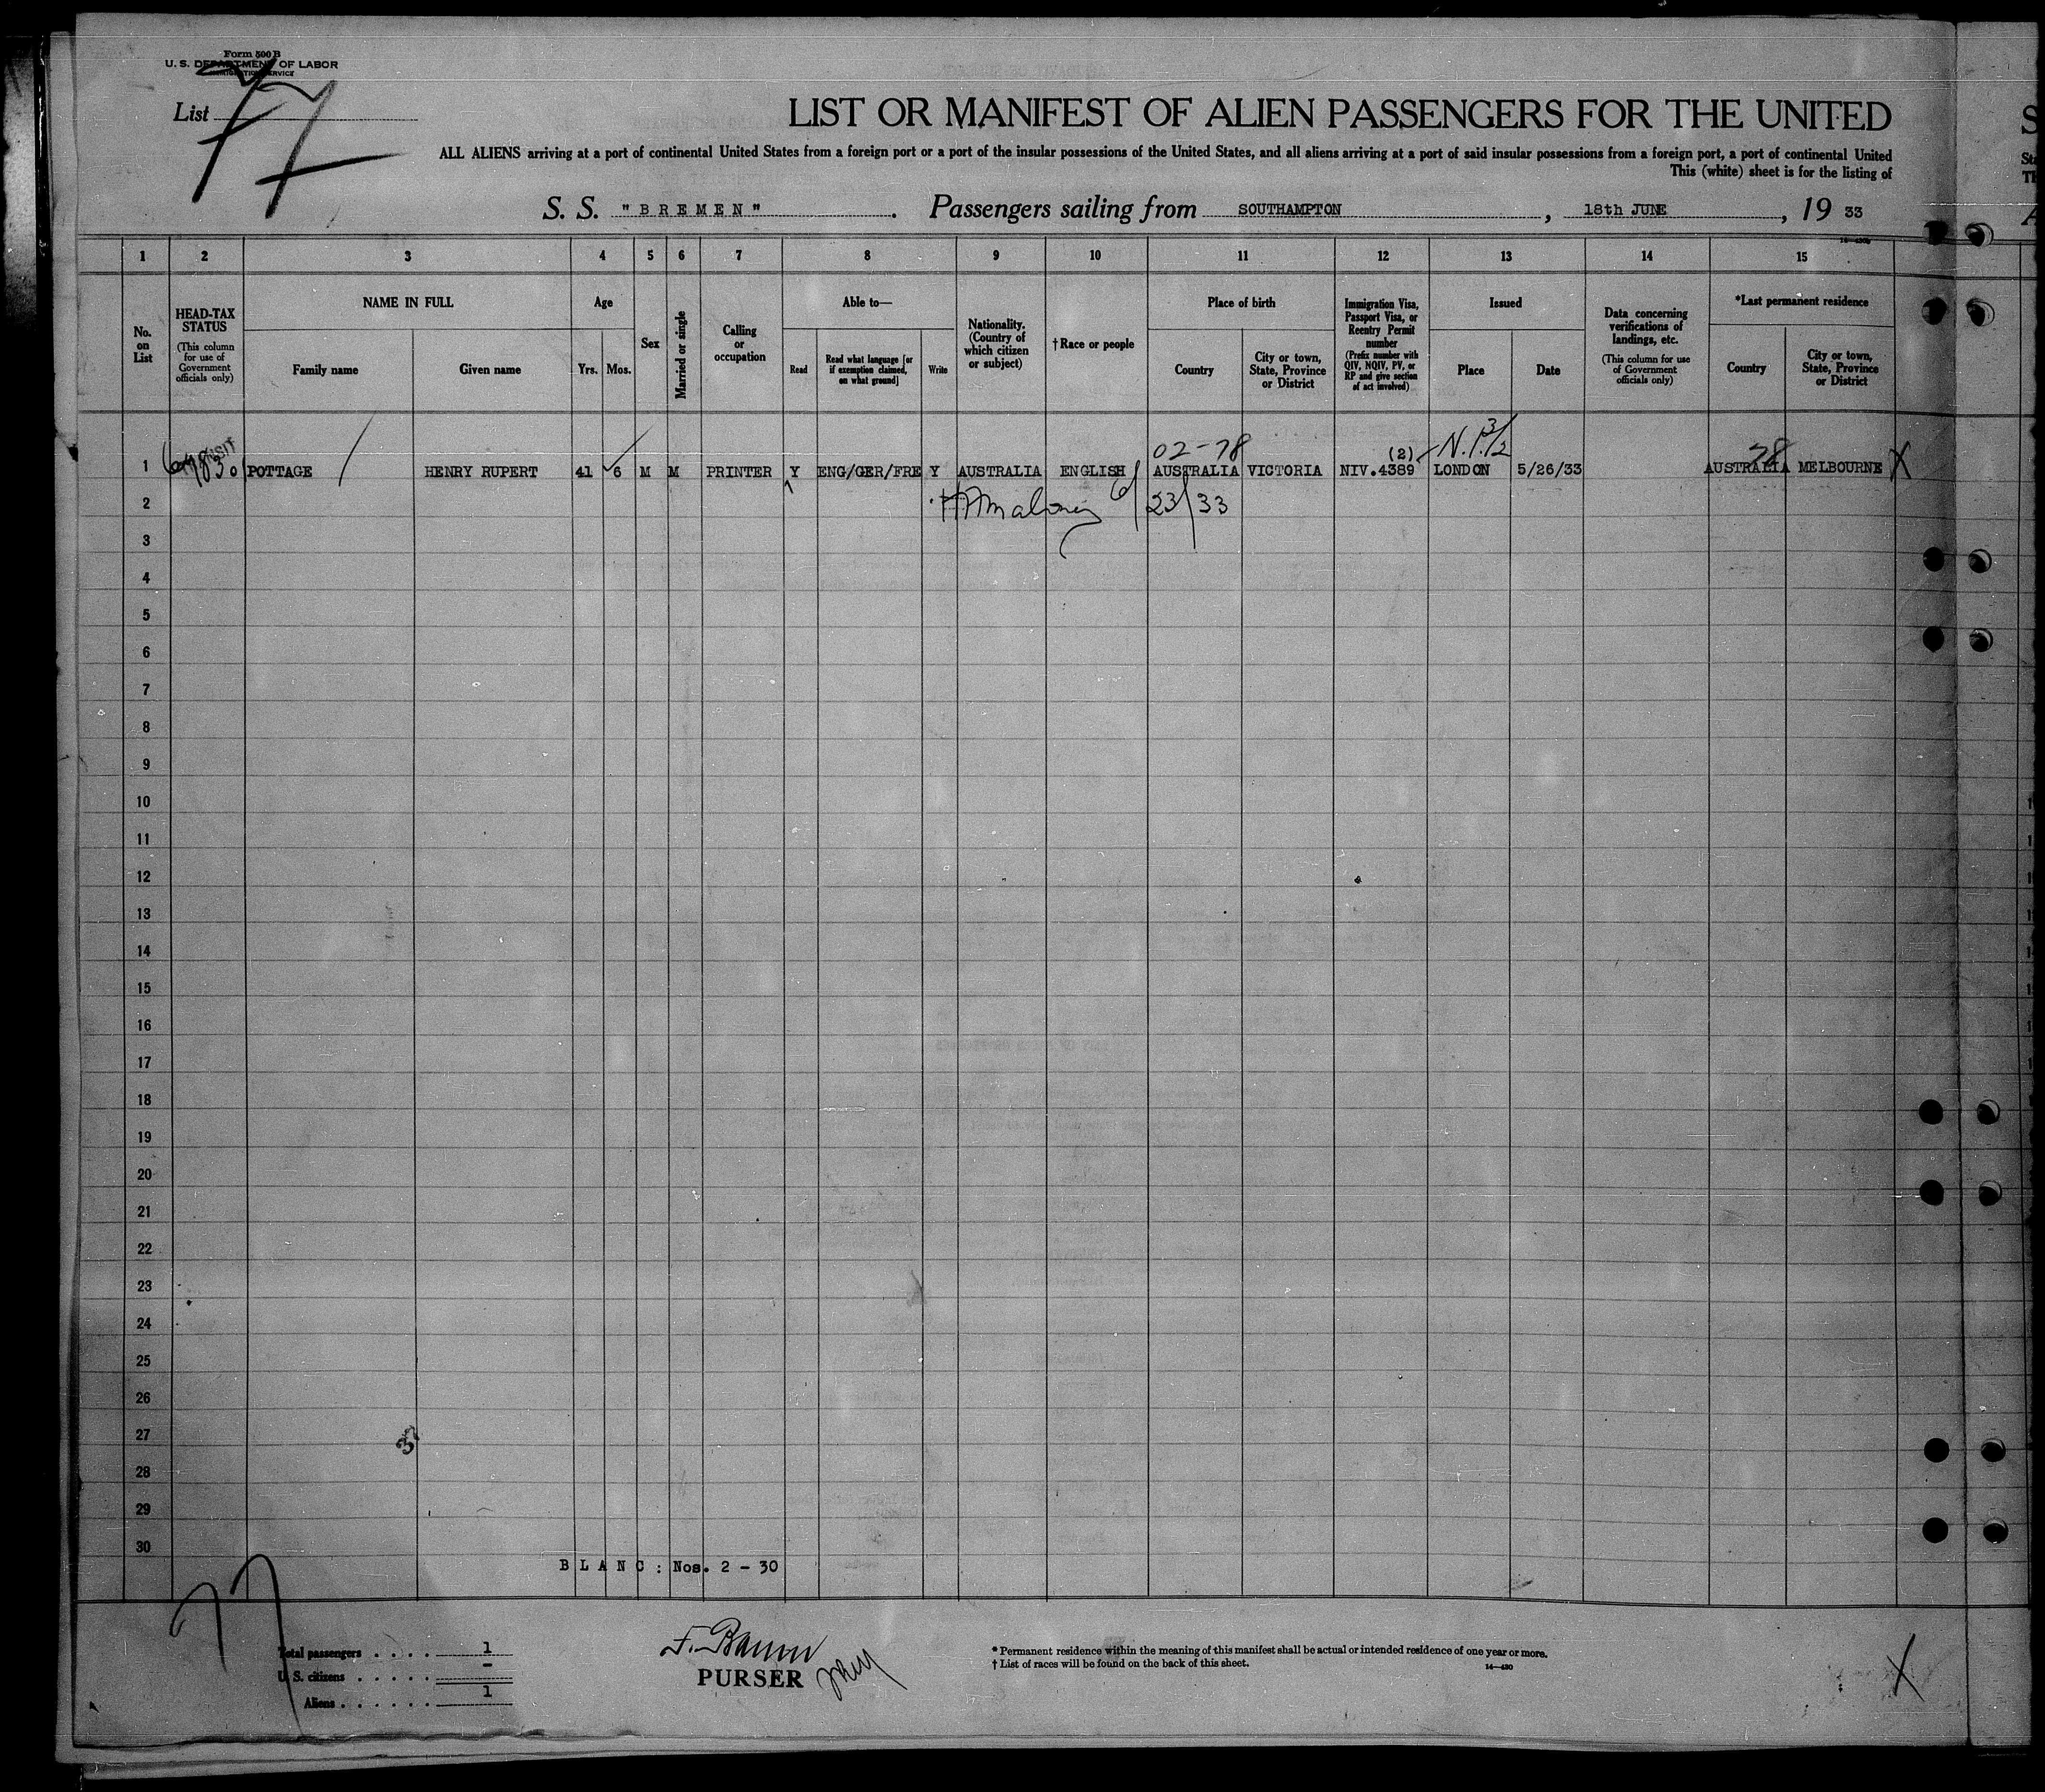 Form 500 B
U. S. DEPARTMENT OF LABOR
IMMIGRATION SERVICE
List 77
LIST OR MANIFEST OF ALIEN PASSENGERS FOR THE UNITED
ALL ALIENS arriving at a port of continental United States from a foreign port or a port of the insular possessions of the United States, and all aliens arriving at a port of said insular possessions from a foreign port, a port of continental United
This (white) sheet is for the listing of
S. S. "BREMEN". Passengers sailing from SOUTHAMPTON, 18th JUNE, 19 33
1 2 3 4 5 6 7 8 9 10 11 12 13 14 15
No. on List
HEAD-TAX STATUS
(This column for use of Government officials only)
NAME IN FULL
Family name
Given name
Age
Yrs. Mos.
Sex
Married or single
Calling or occupation
Able to—
Read
Read what language [or if exemption claimed, on what ground]
Write
Nationality. (Country of which citizen or subject)
†Race or people
Place of birth
Country
City or town, State, Province or District
Immigration Visa, Passport Visa, or Reentry Permit number
(Prefix number with QIV, NQIV, PV, or RP and give section of act involved)
Issued
Place
Date
Data concerning verifications of landings, etc.
(This column for use of Government officials only)
*Last permanent residence
Country
City or town, State, Province or District
02-78 (2) 78
1 POTTAGE HENRY RUPERT 41 6 M M PRINTER Y ENG/GER/FRE Y AUSTRALIA ENGLISH AUSTRALIA VICTORIA NIV.4389 LONDON 5/26/33 AUSTRALIA MELBOURNE X
2 6/23/33
3
4
5
6
7
8
9
10
11
12
13
14
15
16
17
18
19
20
21
22
23
24
25
26
27
37
28
29
30
BLANC: Nos. 2 - 30
77
Total passengers . . . . 1
U. S. citizens . . . . . -
Aliens . . . . . . 1
PURSER
* Permanent residence within the meaning of this manifest shall be actual or intended residence of one year or more.
† List of races will be found on the back of this sheet.
14—430
X